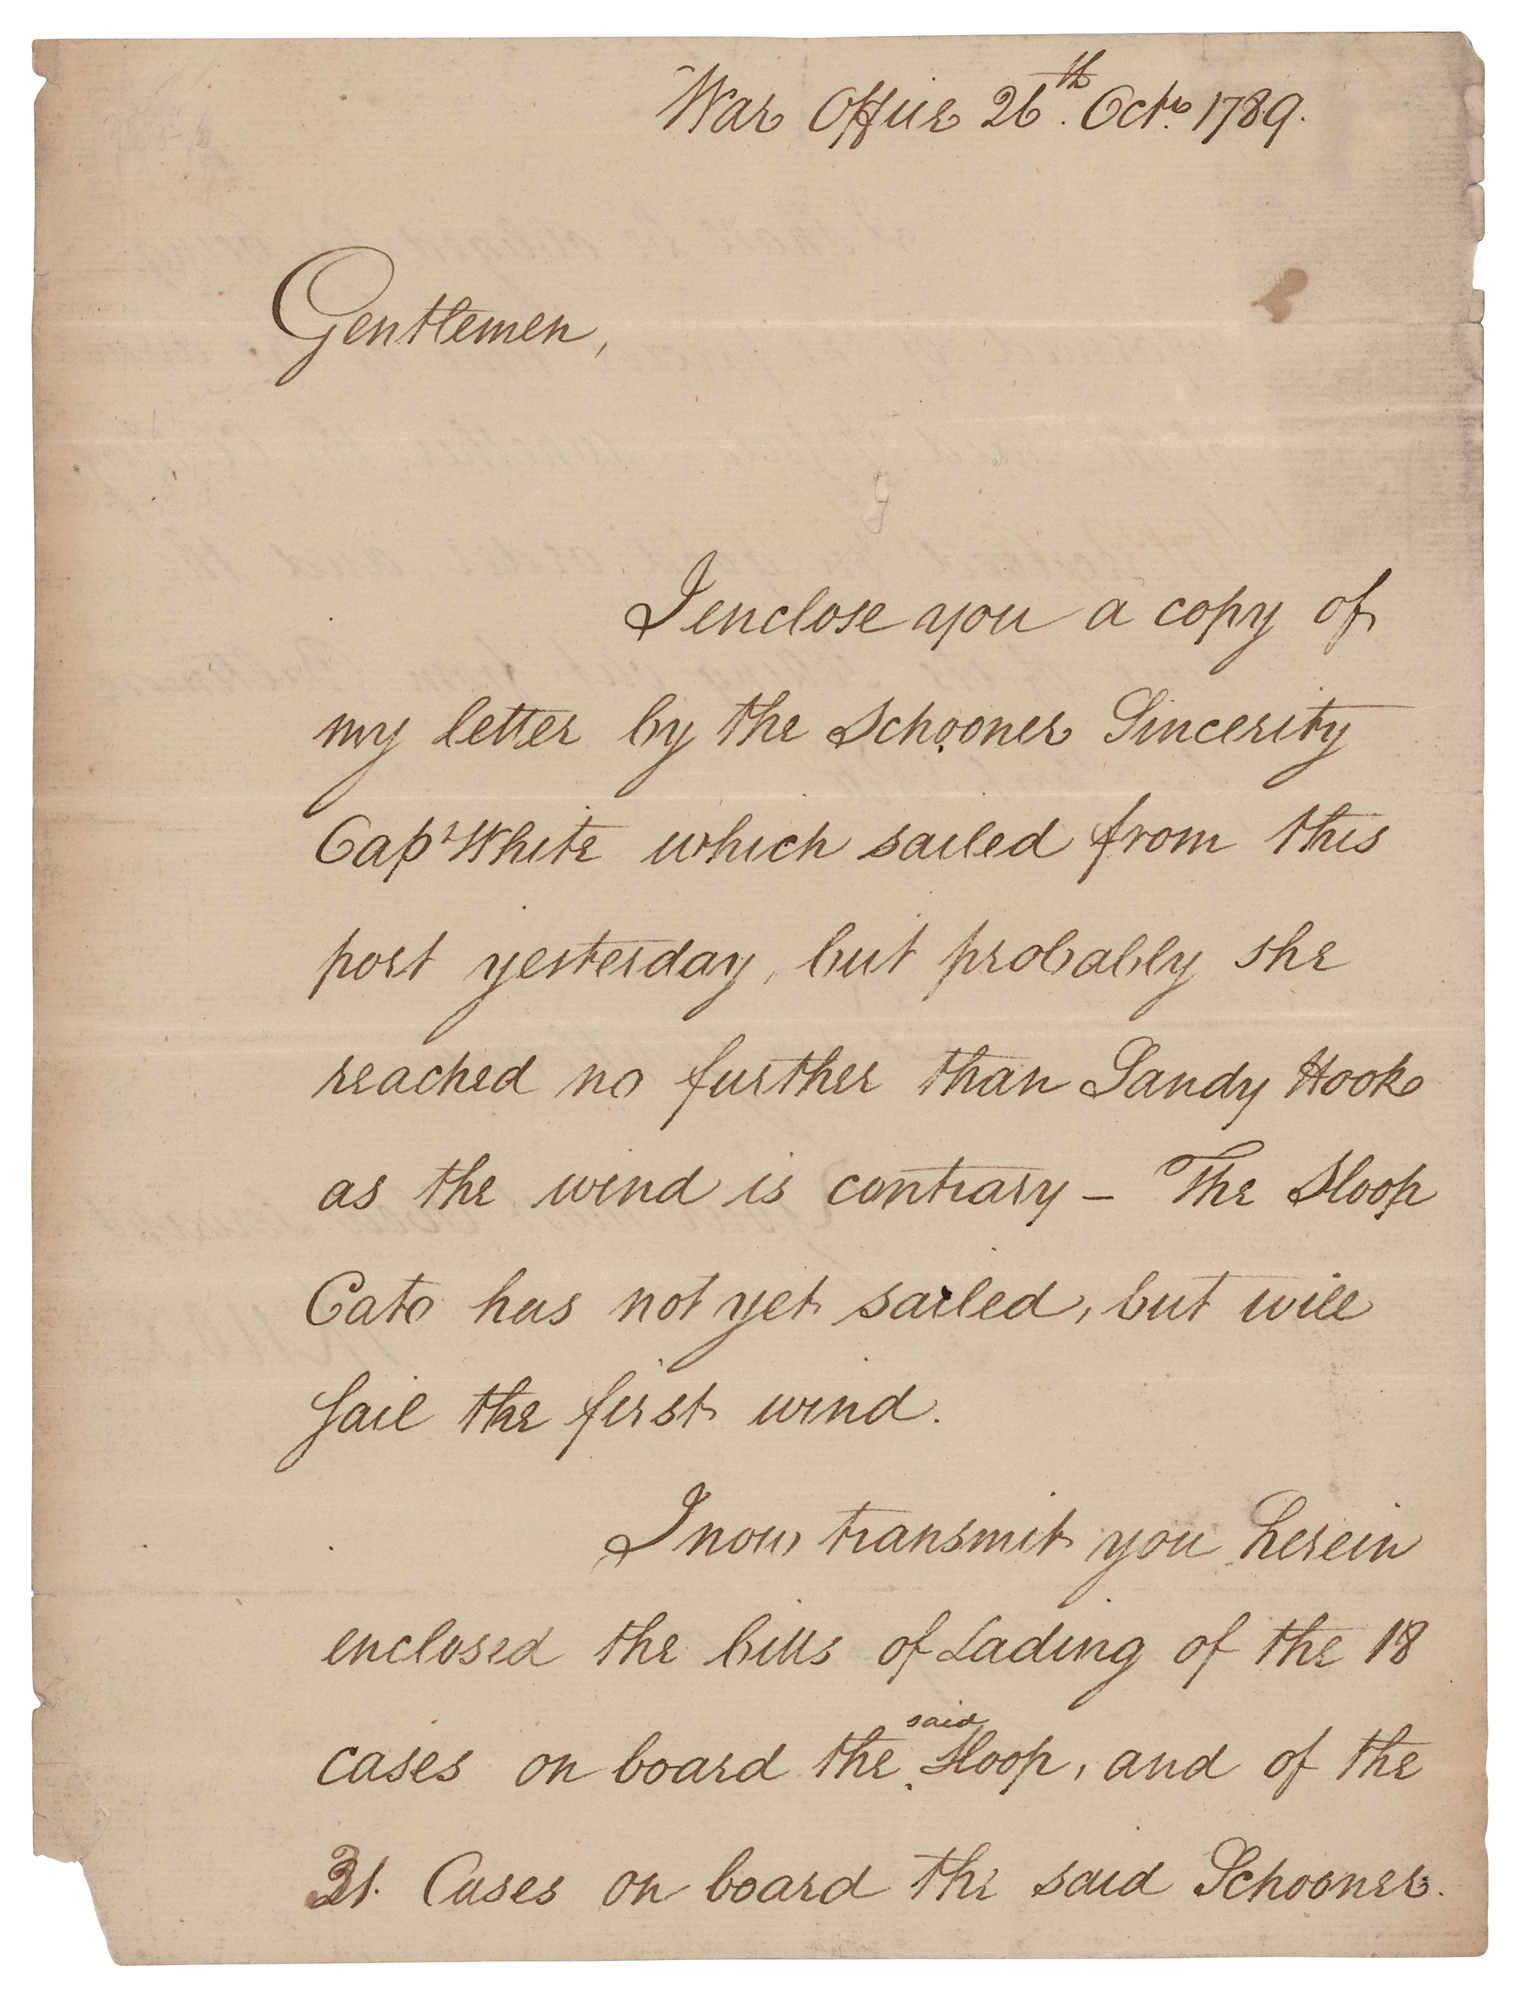 War Office 26th. Octr. 1789.
Gentlemen,
I enclose you a copy of
my letter by the Schooner Sincerity
Capt White which sailed from this
port yesterday, but probably she
reached no further than Sandy Hook
as the wind is contrary – The Sloop
Cato has not yet sailed, but will
sail the first wind.
I now transmit you herein
enclosed the bills of Lading of the 18
cases on board the said Sloop, and of the
31. Cases on board the said Schooner.